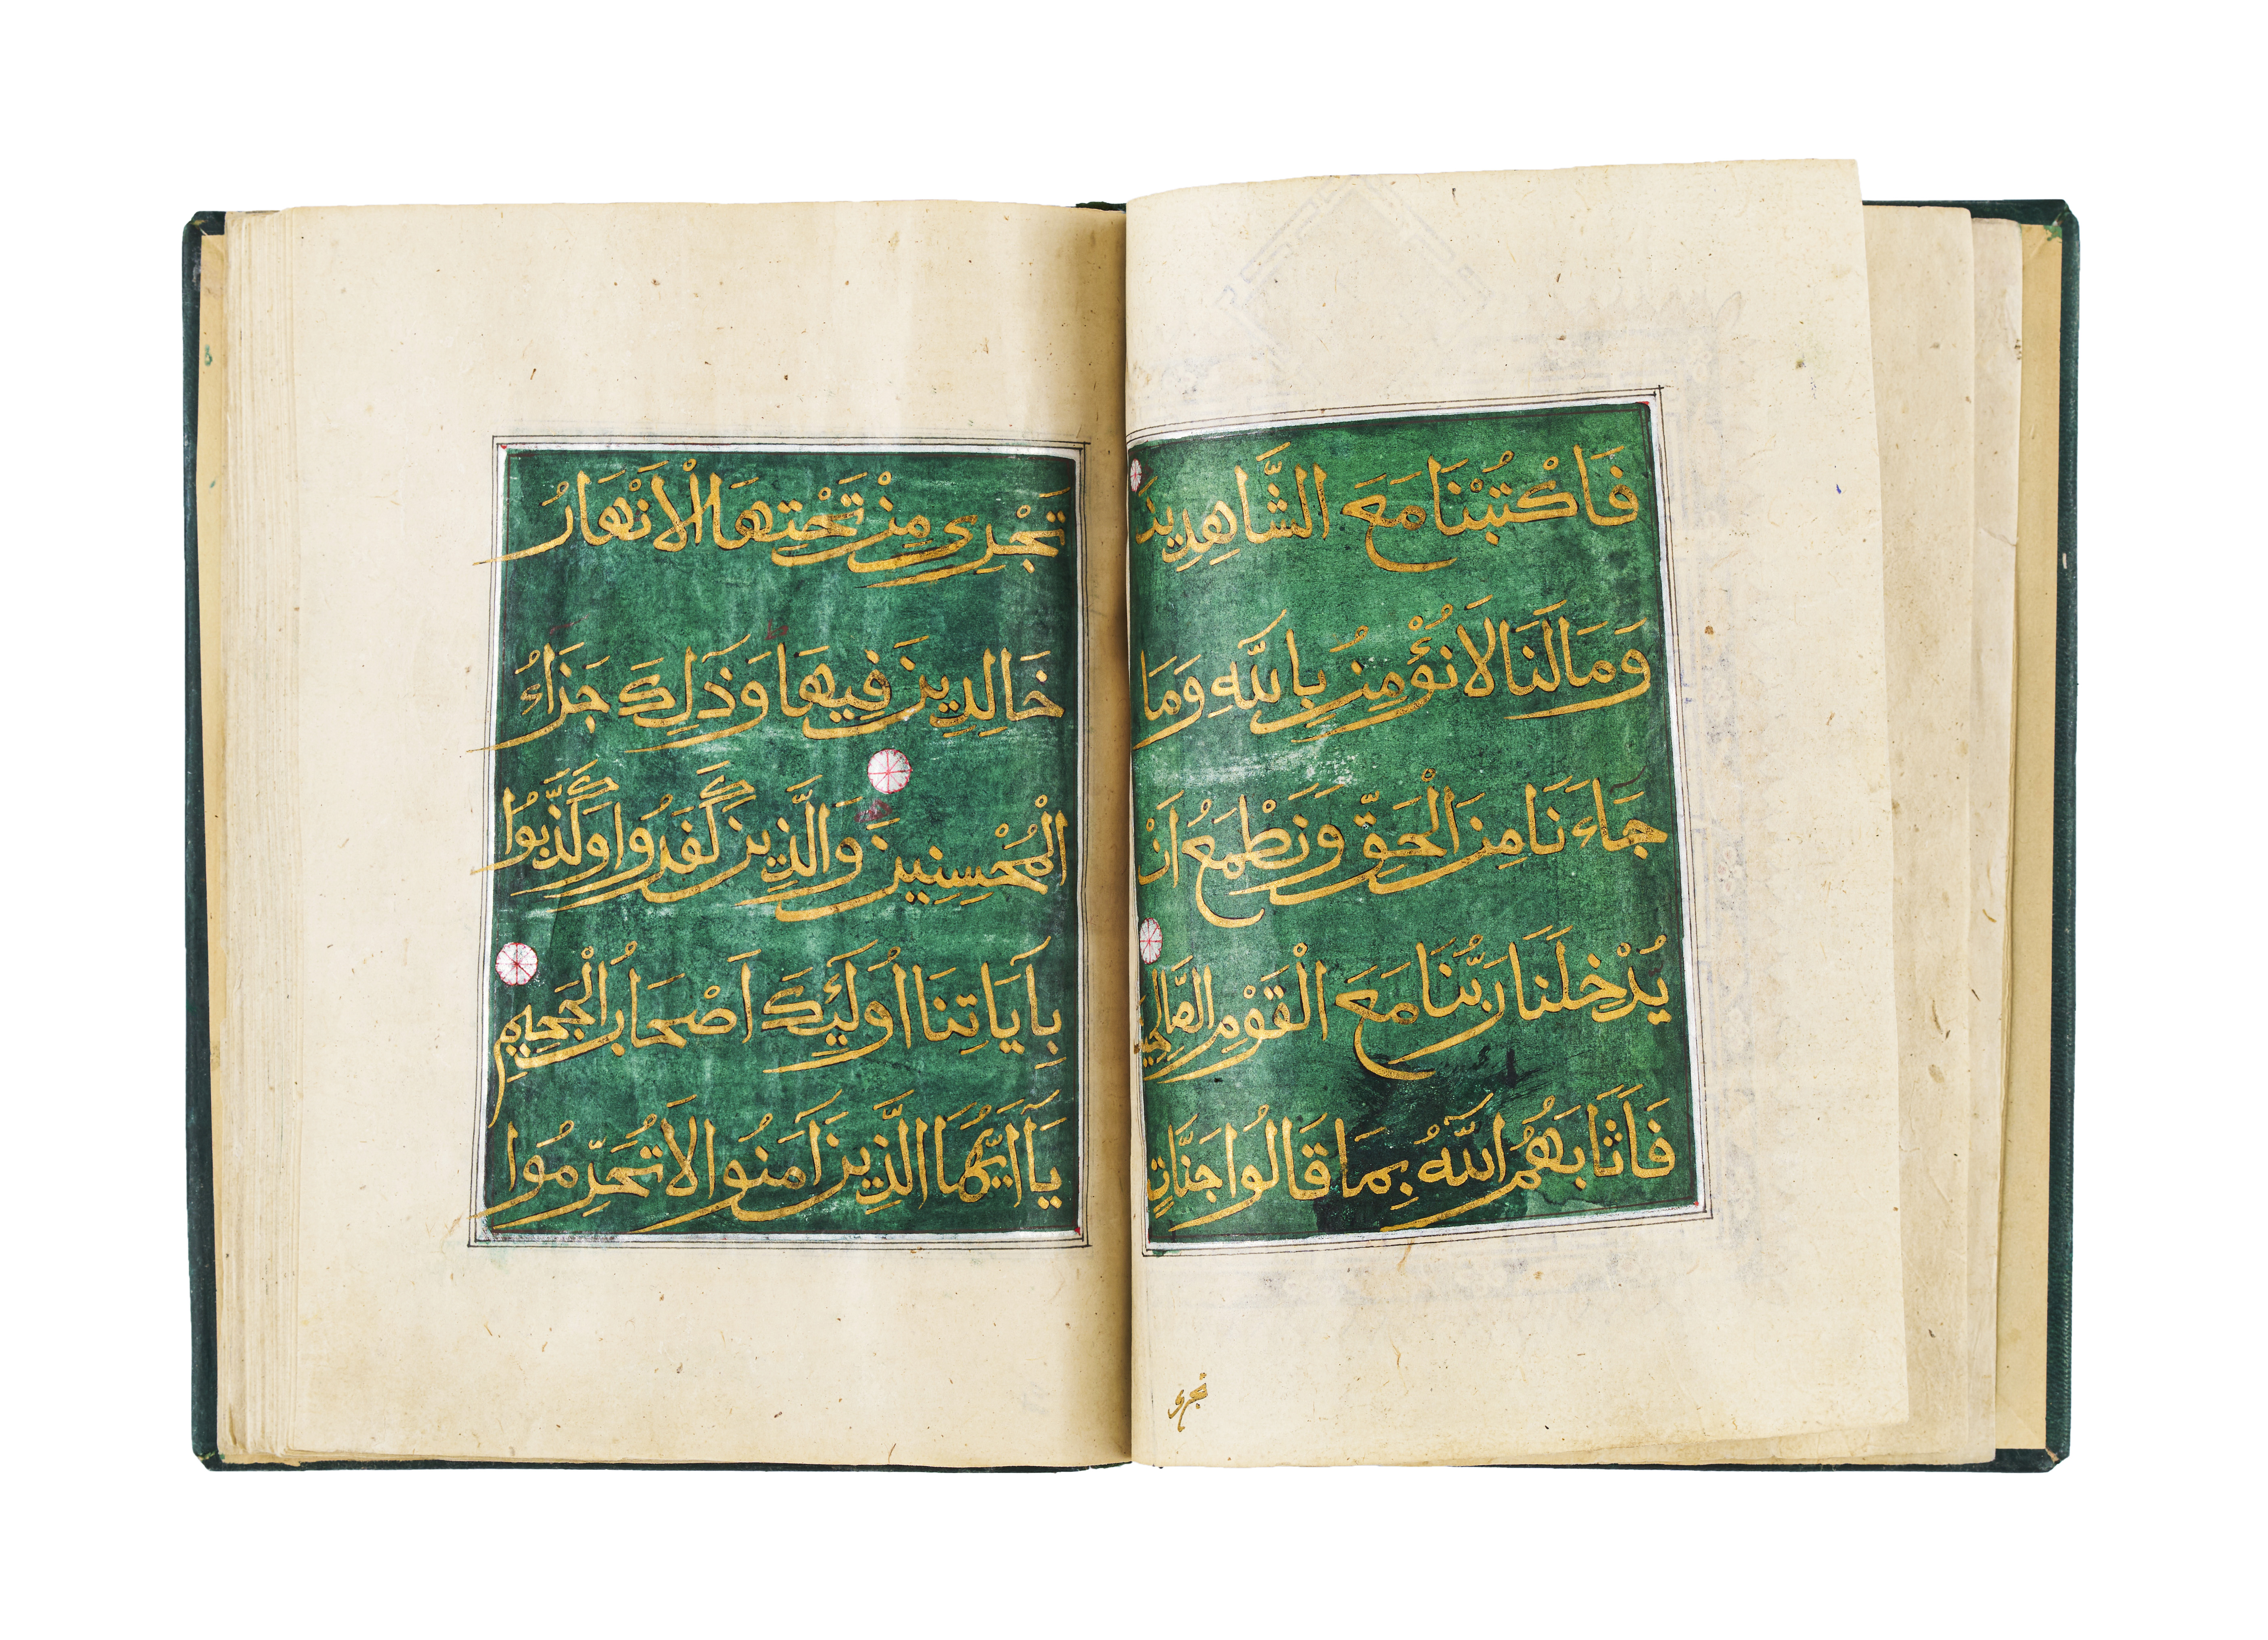 فَاكْتُبْنَا مَعَ الشَّاهِدِينَ
وَمَا لَنَا لَا نُؤْمِنُ بِاللّٰهِ وَمَا
جَاءَنَا مِنَ الْحَقِّ وَنَطْمَعُ اَنْ
يُدْخِلَنَا رَبُّنَا مَعَ الْقَوْمِ الصَّالِحِينَ
فَاَثَابَهُمُ اللّٰهُ بِمَا قَالُوا جَنَّاتٍ
تجرى
تَجْرِى مِنْ تَحْتِهَا الْاَنْهَارُ
خَالِدِينَ فِيهَا وَذٰلِكَ جَزَاءُ
الْمُحْسِنِينَ وَالَّذِينَ كَفَرُوا وَكَذَّبُوا
بِاٰيَاتِنَا اُولٰئِكَ اَصْحَابُ الْجَحِيمِ
يَا اَيُّهَا الَّذِينَ اٰمَنُوا لَا تُحَرِّمُوا